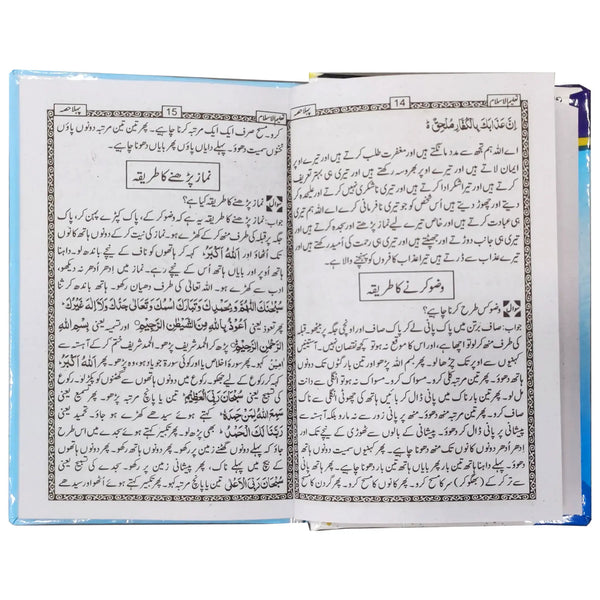 تعلیم الاسلام 14 پہلا حصہ
اِنَّ عَذَابَكَ بِالْكُفَّارِ مُلْحِقٌ ؕ
اے اللہ ہم تجھ سے مدد مانگتے ہیں اور مغفرت طلب کرتے ہیں اور تیرے اوپر
ایمان لاتے ہیں اور تیرے اوپر بھروسہ رکھتے ہیں اور تیری بہتر تعریف
کرتے ہیں اور تیرا شکر ادا کرتے ہیں اور تیری ناشکری نہیں کرتے اور علیحدہ کر
دیتے اور چھوڑ دیتے ہیں اُس شخص کو جو تیری نافرمانی کرے اے اللہ ہم تیری
ہی عبادت کرتے ہیں اور خاص تیرے لیے نماز پڑھتے اور سجدہ کرتے ہیں اور
تیری ہی جانب دوڑتے اور جھپٹتے ہیں اور تیری ہی رحمت کی اُمید رکھتے ہیں اور
تیرے عذاب سے ڈرتے ہیں تیرا عذاب کافروں کو پہنچنے والا ہے۔
وضو کرنے کا طریقہ
سوال وضو کس طرح کرنا چاہیے؟
جواب: صاف برتن میں پاک پانی لے کر پاک صاف اور اونچی جگہ پر بیٹھو۔ قبلہ
کی طرف منھ کر لو تو اچھا ہے اور اس کا موقع نہ ہو تو کچھ نقصان نہیں۔ آستینیں
کہنیوں سے اوپر تک چڑھا لو۔ پھر بسم اللہ پڑھو اور تین بار گٹوں تک دونوں
ہاتھ دھوؤ۔ پھر تین مرتبہ کلی کرو۔ مسواک کرو۔ مسواک نہ ہو تو انگلی سے دانت
مل لو۔ پھر تین بار ناک میں پانی ڈال کر بائیں ہاتھ کی چھنگلی سے ناک
صاف کرو۔ پھر تین مرتبہ منھ دھوؤ۔ منھ پر پانی زور سے نہ مارو بلکہ آہستہ سے
پیشانی پر پانی ڈال کر دھوؤ۔ پیشانی کے بالوں سے ٹھوڑی کے نیچے تک اور
اِدھر اُدھر دونوں کانوں تک منھ دھونا چاہیے۔ پھر کہنیوں سمیت دونوں ہاتھ
دھوؤ۔ پہلے داہنا ہاتھ تین بار پھر بایاں ہاتھ تین بار دھونا چاہیے۔ پھر ہاتھ پانی
سے تر کر کے (بھگو کر) سر کا مسح کرو۔ پھر کانوں کا مسح کرو۔ پھر گردن کا مسح
تعلیم الاسلام 15 پہلا حصہ
کرو۔ مسح صرف ایک ایک مرتبہ کرنا چاہیے۔ پھر تین تین مرتبہ دونوں پاؤں
ٹخنوں سمیت دھوؤ۔ پہلے دایاں پاؤں پھر بایاں دھونا چاہیے۔
نماز پڑھنے کا طریقہ
سوال نماز پڑھنے کا طریقہ کیا ہے؟
جواب: نماز پڑھنے کا طریقہ یہ ہے کہ وضو کر کے، پاک کپڑے پہن کر، پاک
جگہ پر قبلہ کی طرف منھ کر کے کھڑے ہو۔ نماز کی نیت کر کے دونوں ہاتھ کانوں
تک اُٹھاؤ اور اَللّٰهُ اَكْبَرُ کہہ کر ہاتھوں کو ناف کے نیچے باندھ لو۔ داہنا
ہاتھ اُوپر اور بایاں ہاتھ اُس کے نیچے رہے۔ نماز میں اِدھر اُدھر نہ دیکھو،
ادب سے کھڑے ہو، خدا تعالیٰ کی طرف دھیان رکھو۔ ہاتھ باندھ کر ثنا
سُبْحٰنَكَ اللّٰهُمَّ وَبِحَمْدِكَ وَتَبَارَكَ اسْمُكَ وَتَعَالٰى جَدُّكَ وَلَآ اِلٰهَ غَيْرُكَ
پھر تعوذ یعنی اَعُوْذُ بِاللّٰهِ مِنَ الشَّيْطٰنِ الرَّجِيْمِ اور تسمیہ یعنی بِسْمِ اللّٰهِ
الرَّحْمٰنِ الرَّحِيْمِ پڑھ کر الحمد شریف پڑھو۔ الحمد شریف ختم کر کے آہستہ سے آمین
کہو۔ پھر سورۂ اخلاص یا اور کوئی سورۃ جو یاد ہو، وہ پڑھو۔ پھر اَللّٰهُ اَكْبَرُ
کہہ کر رکوع کے لیے جھکو۔ رکوع میں دونوں ہاتھوں سے گھٹنوں کو پکڑ لو۔ رکوع
کی تسبیح یعنی سُبْحَانَ رَبِّيَ الْعَظِيْمِ تین یا پانچ مرتبہ پڑھو۔ پھر تسمیع یعنی
سَمِعَ اللّٰهُ لِمَنْ حَمِدَهٗ کہتے ہوئے سیدھے کھڑے ہو جاؤ تحمید یعنی
رَبَّنَا لَكَ الْحَمْدُ بھی پڑھ لو۔ پھر تکبیر کہتے ہوئے سجدے میں اس طرح
جاؤ کہ پہلے دونوں گھٹنے زمین پر رکھو۔ پھر دونوں ہاتھ رکھو پھر دونوں ہاتھوں
کے بیچ میں پہلے ناک۔ پھر پیشانی زمین پر رکھو۔ سجدے کی تسبیح یعنی
سُبْحَانَ رَبِّيَ الْاَعْلٰى تین یا پانچ مرتبہ کہو۔ پھر تکبیر کہتے ہوئے اٹھو اور سیدھے